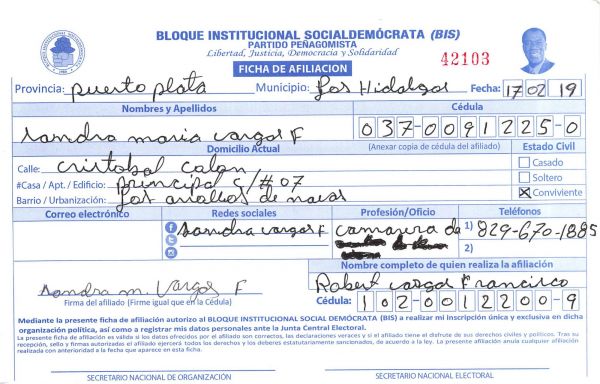 BLOQUE INSTITUCIONAL SOCIALDEMÓCRATA (BIS)
PARTIDO PEÑAGOMISTA
Libertad, Justicia, Democracia y Solidaridad
FICHA DE AFILIACION
42103
Provincia: puerto plata Municipio: Los Hidalgos Fecha: 17 02 19
Nombres y Apellidos Cédula
sandra maria vargas F 037-0091225-0
Domicilio Actual (Anexar copia de cédula del afiliado) Estado Civil
Calle: cristobal colon
#Casa / Apt. / Edificio: principal S/#07
Barrio / Urbanización: Los de navas
Casado
Soltero
X Conviviente
Correo electrónico Redes sociales Profesión/Oficio Teléfonos
sandra vargas F camarera de 1) 829-670-1885
2)
Nombre completo de quien realiza la afiliación
sandra m. Vargas F Robert vargas Francisco
Firma del afiliado (Firme igual que en la Cédula) Cédula: 102-0012200-9
Mediante la presente ficha de afiliación autorizo al BLOQUE INSTITUCIONAL SOCIALDEMÓCRATA (BIS) a realizar mi inscripción única y exclusiva en dicha
organización política, así como a registrar mis datos personales ante la Junta Central Electoral.
La presente ficha de afiliación es válida si los datos ofrecidos por el afiliado son correctos, las declaraciones veraces y si el afiliado tiene el disfrute de sus derechos civiles y políticos. Tras su
recepción, sello y firmas autorizado el afiliado ejercerá todos los derechos y los deberes estatutariamente sancionados, de acuerdo a la ley. La presente afiliación anula cualquier afiliación
realizada con anterioridad a la fecha que aparece en esta ficha.
SECRETARIO NACIONAL DE ORGANIZACIÓN SECRETARIO NACIONAL ELECTORAL